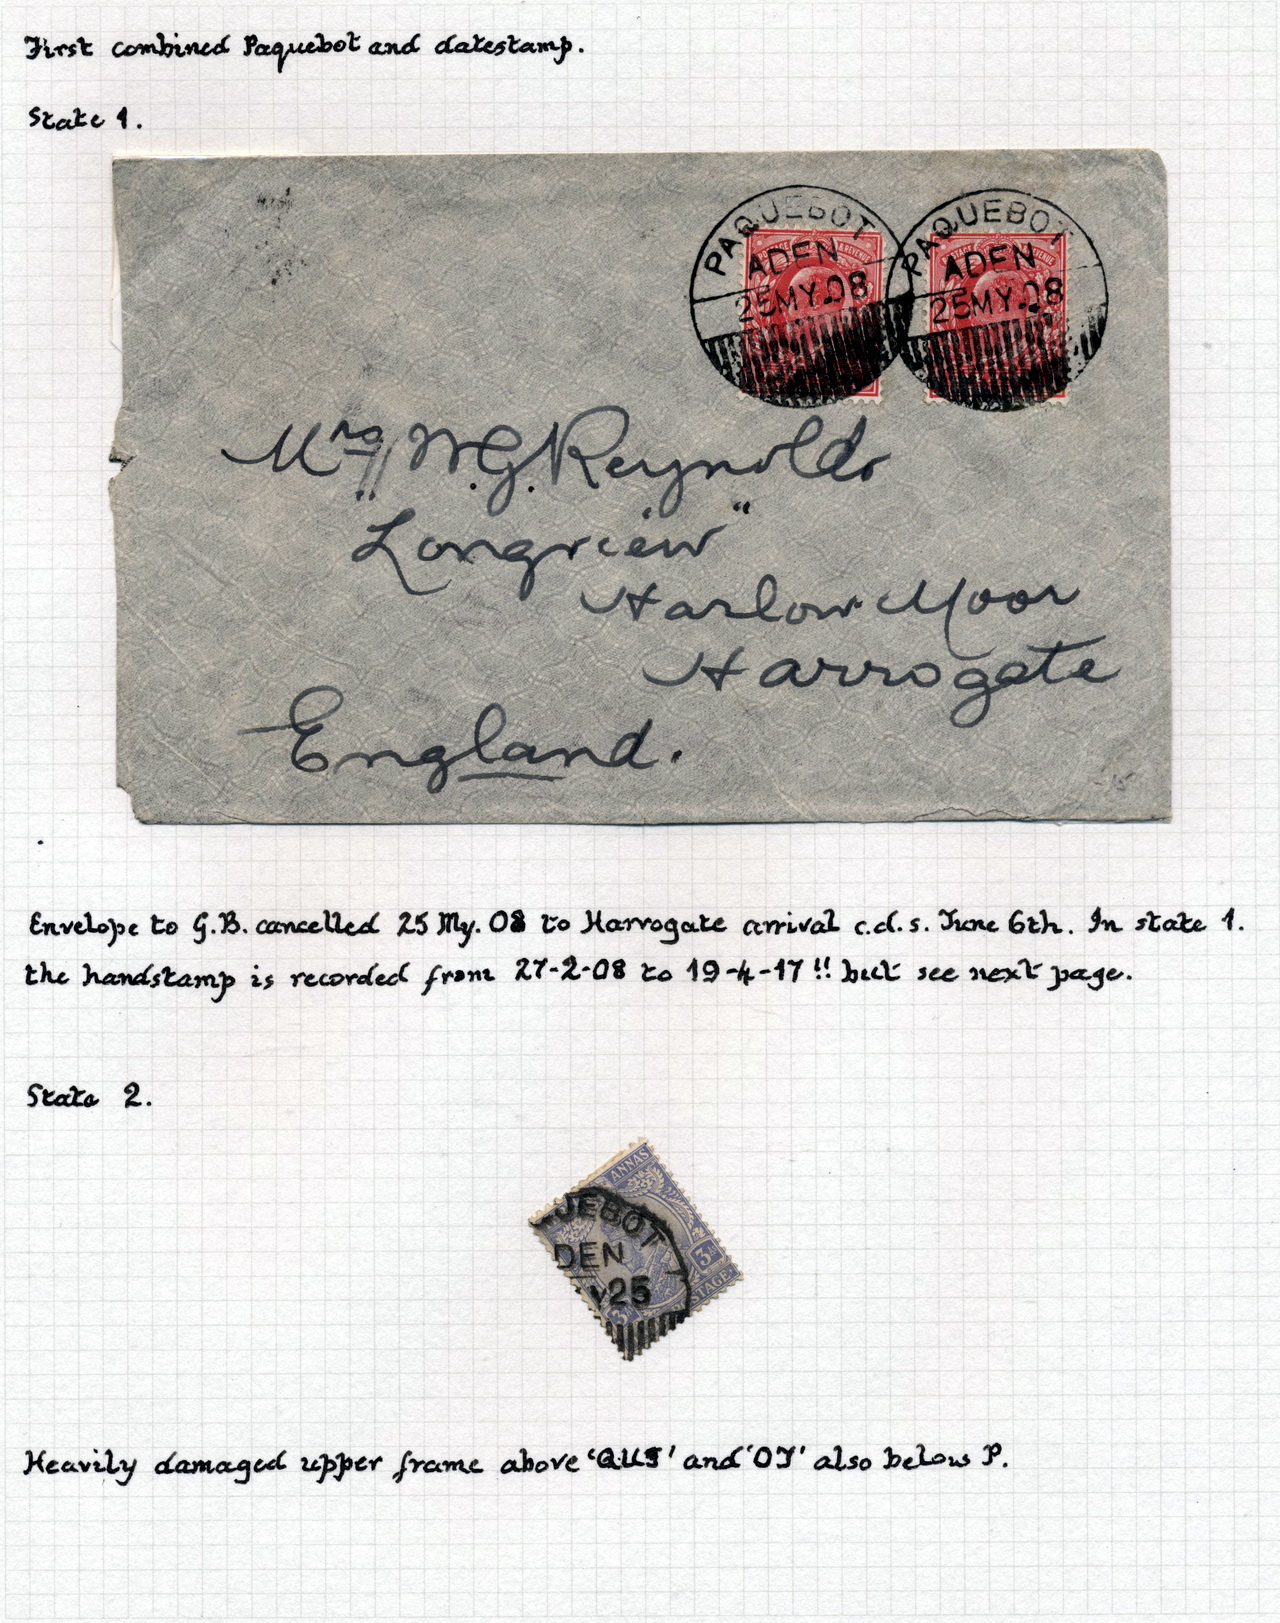 First combined Paquebot and datestamp.
State 1.
PAQUEBOT
ADEN
25MY.08
PAQUEBOT
ADEN
25MY.08
Mrs W.G. Reynolds
"Longview"
Harlow Moor
Harrogate
England.
Envelope to G.B. cancelled 25 My. 08 to Harrogate arrival c.d.s. June 6th. In state 1.
the handstamp is recorded from 27-2-08 to 19-4-17 !! but see next page.
State 2.
ANNAS
UEBOT
DEN
25
3A
STAGE
Heavily damaged upper frame above 'QUE' and 'OT' also below P.